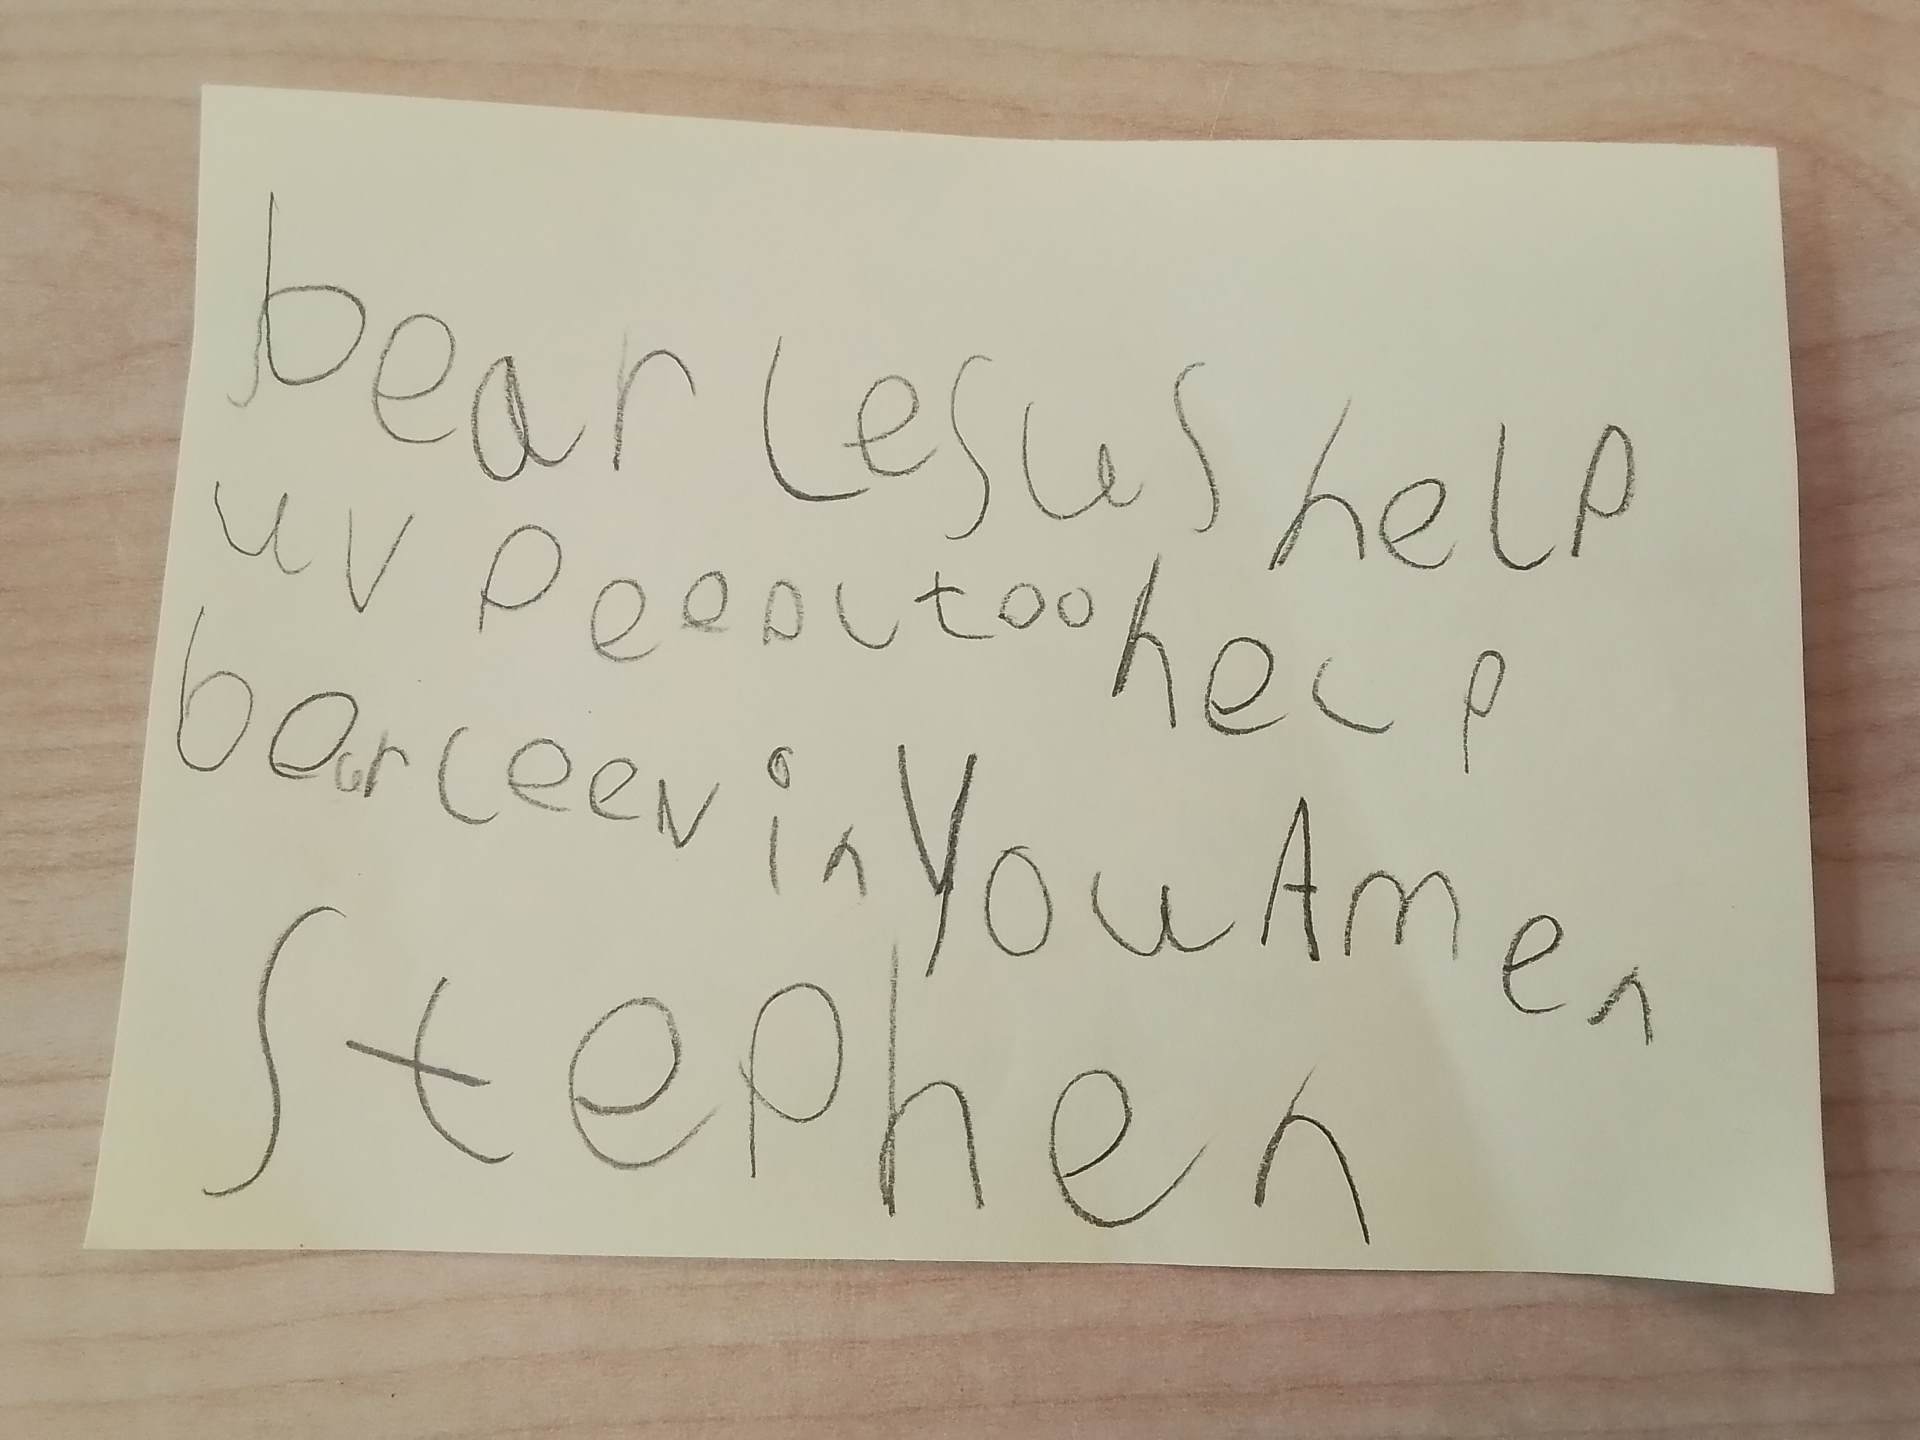 bear Lesus help
uv PeePL too help
bearLeev in You Amen
Stephen